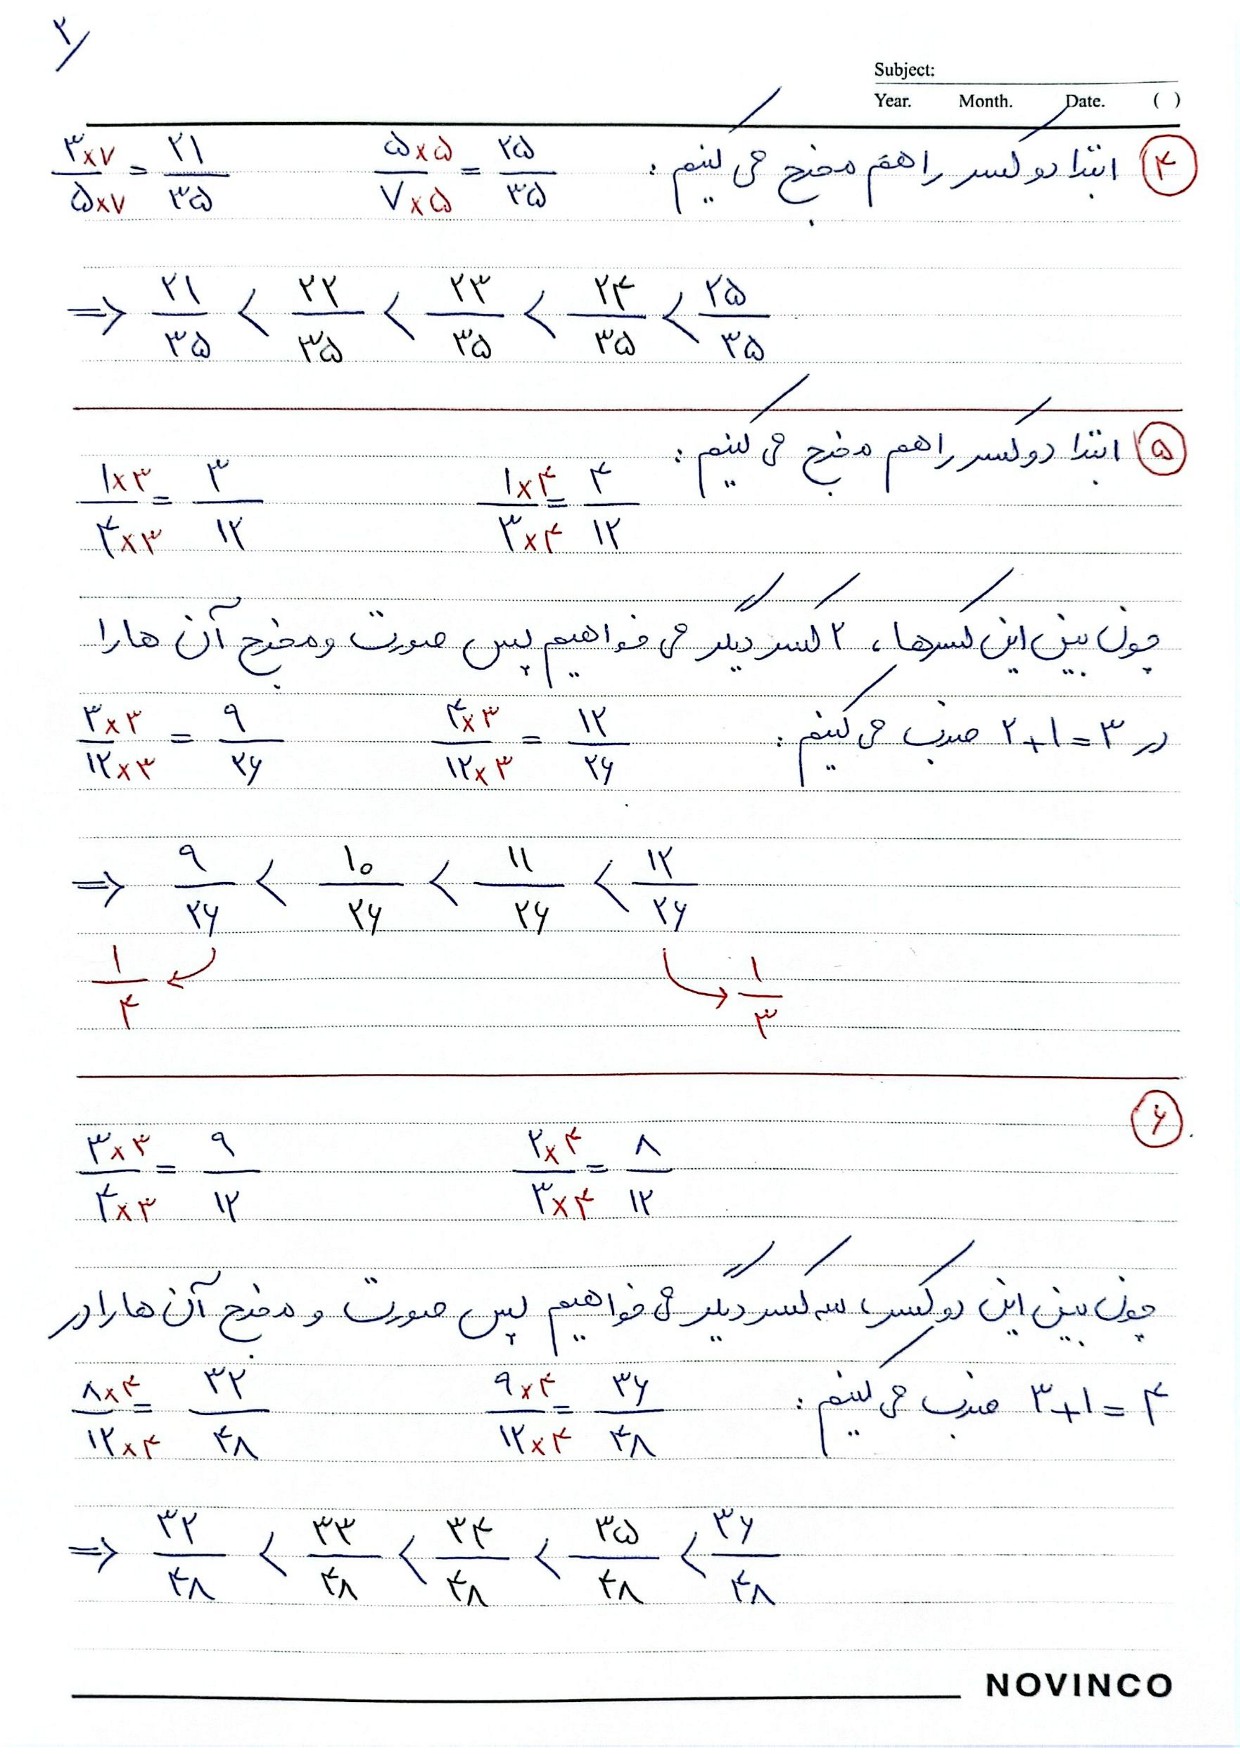 ۲
Subject:
Year. Month. Date. ( )
۴ ابتدا دو کسر را هم مخرج می کنیم :
۳×۷/۵×۷ = ۲۱/۳۵    ۵×۵/۷×۵ = ۲۵/۳۵
=> ۲۱/۳۵ < ۲۲/۳۵ < ۲۳/۳۵ < ۲۴/۳۵ < ۲۵/۳۵
۵ ابتدا دو کسر را هم مخرج می کنیم :
۱×۳/۴×۳ = ۳/۱۲    ۱×۴/۳×۴ = ۴/۱۲
چون بین این کسرها، ۲ کسر دیگر می خواهیم پس صورت و مخرج آن ها را
در ۳=۱+۲ ضرب می کنیم :
۳×۳/۱۲×۳ = ۹/۳۶    ۴×۳/۱۲×۳ = ۱۲/۳۶
=> ۹/۳۶ < ۱۰/۳۶ < ۱۱/۳۶ < ۱۲/۳۶
۱/۴    ۱/۳
۶
۳×۳/۴×۳ = ۹/۱۲    ۲×۴/۳×۴ = ۸/۱۲
چون بین این دو کسر، سه کسر دیگر می خواهیم پس صورت و مخرج آن ها را در
۴=۱+۳ ضرب می کنیم :
۸×۴/۱۲×۴ = ۳۲/۴۸    ۹×۴/۱۲×۴ = ۳۶/۴۸
=> ۳۲/۴۸ < ۳۳/۴۸ < ۳۴/۴۸ < ۳۵/۴۸ < ۳۶/۴۸
NOVINCO